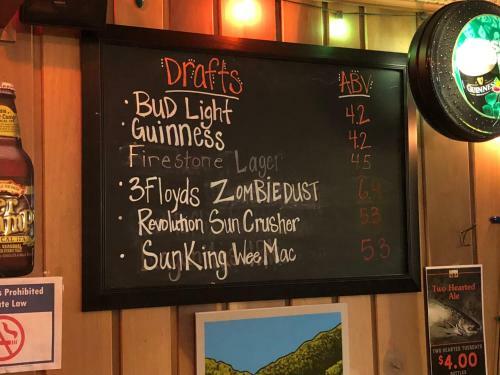 Drafts
ABV
· Bud Light 4.2
· Guinness 4.2
Firestone Lager 4.5
· 3Floyds ZOMBIEDUST
· Revolution Sun Crusher 5.3
· SunKing Wee Mac 5.3
GUINNESS
Prohibited
Law
Two Hearted
Ale
TWO HEARTED TUESDAYS
$4.00
BOTTLES